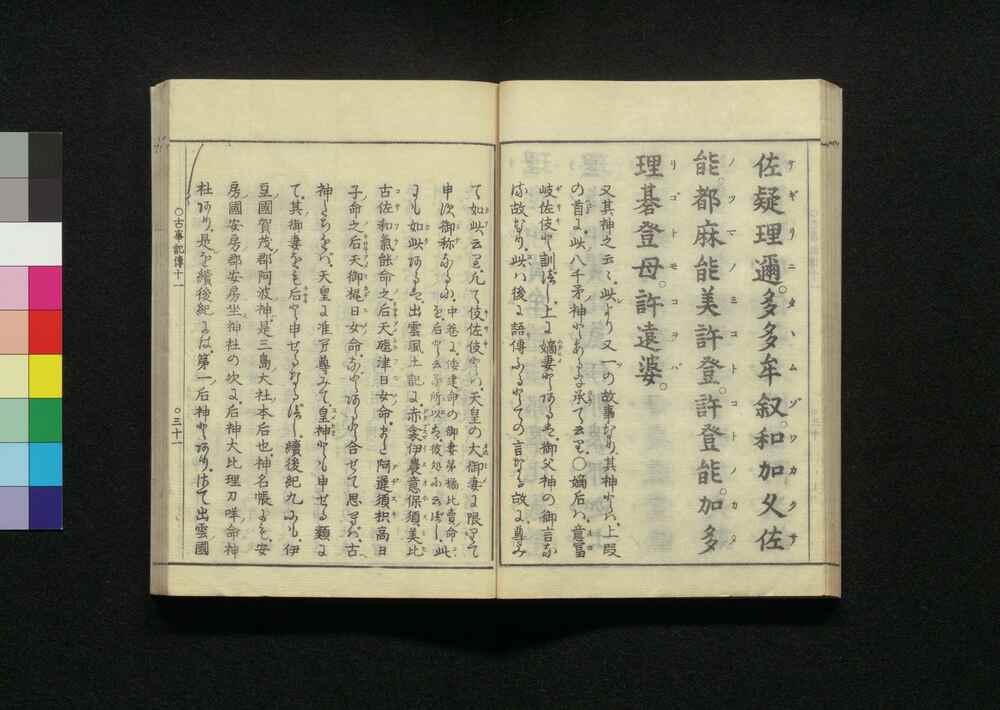 佐疑理邇。多多牟叙。和加久佐
能。都麻能美許登。許登能。加多
理碁登母。許遠婆。
又其神之云々、此より又一の故事なり、其神とハ、上段
の首に、此八千矛神とあるを承て云り、〇嫡后ハ、意富
岐佐伎と訓べし、上に嫡妻とあるハ、御父神の御言な
る故なり、此ハ後に語傳ふるとての言なる故に、尊み
て如此云り、凡て伎佐伎とハ、天皇の大御妻に限りて
申す御称なるに、中卷に、倭建命の御妻弟橘比賣命
にも如此あるハ、出雲風土記に、赤衾伊農意保須美比
古佐和氣能命之后天𤭖津日女命、また阿遲須枳高日
子命之后天御梶日女命、などあると合せて思ふに、古
神たちをバ、天皇に准へ尊みて、皇神とも申せる類に
て、其御妻をも后と申せるなるべし、續後紀九にも、伊
豆國賀茂郡阿波神、是三島大社本后也、神名帳にも、安
房國安房郡安房坐神社の次に、后神大比理刀咩命神
社あり、是を續後紀には、第一后神とあり、はて出雲國
〇古事記傳十一
〇三十一